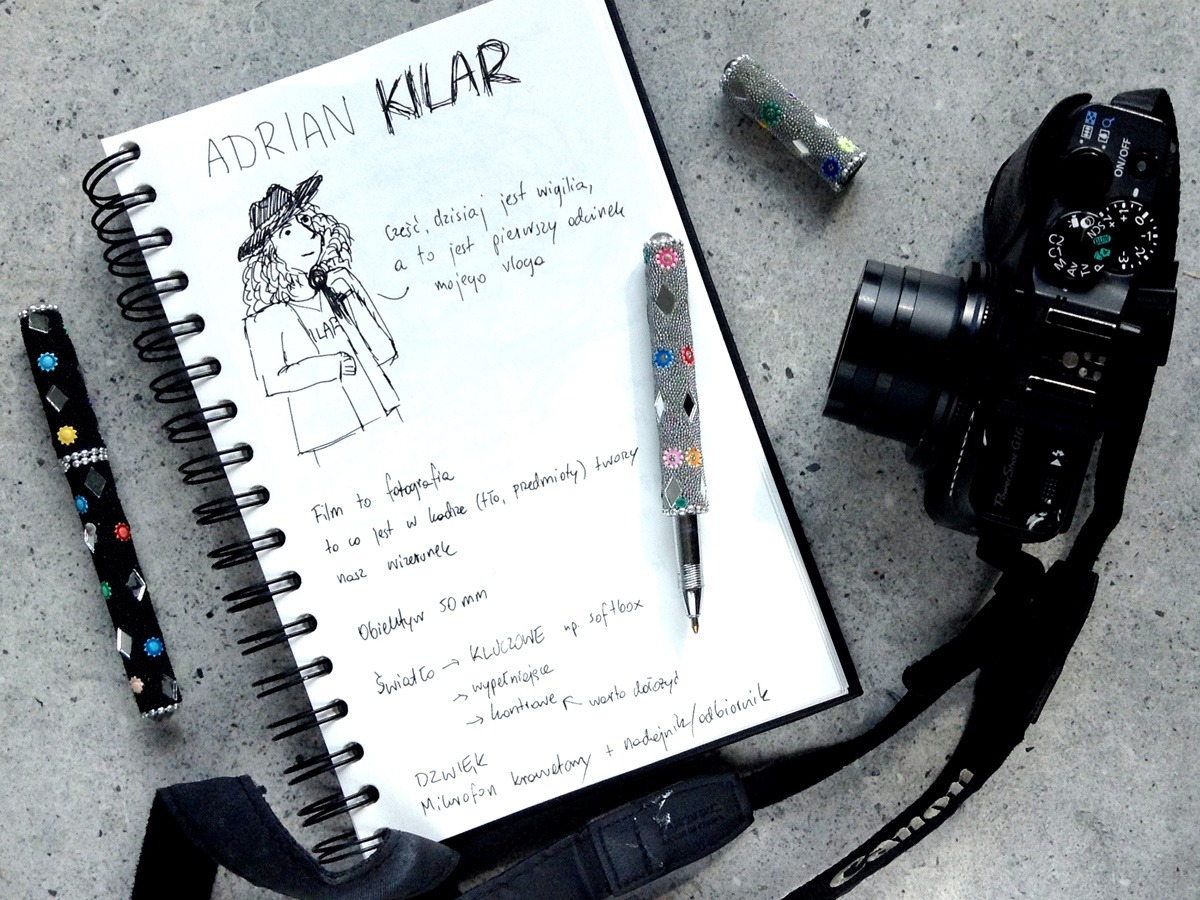 ADRIAN KILAR
cześć, dzisiaj jest wigilia,
a to jest pierwszy odcinek
mojego vloga
KILAR
Film to fotografia
to co jest w kadrze (tło, przedmioty) tworzy
nasz wizerunek
Obiektyw 50mm
Światło → KLUCZOWE np. softbox
→ wypełniające
→ kontrowe ← warto dołożyć
DZWIĘK
Mikrofon krawatowy + nadajnik/odbiornik
ON/OFF
PowerShot G16
Canon